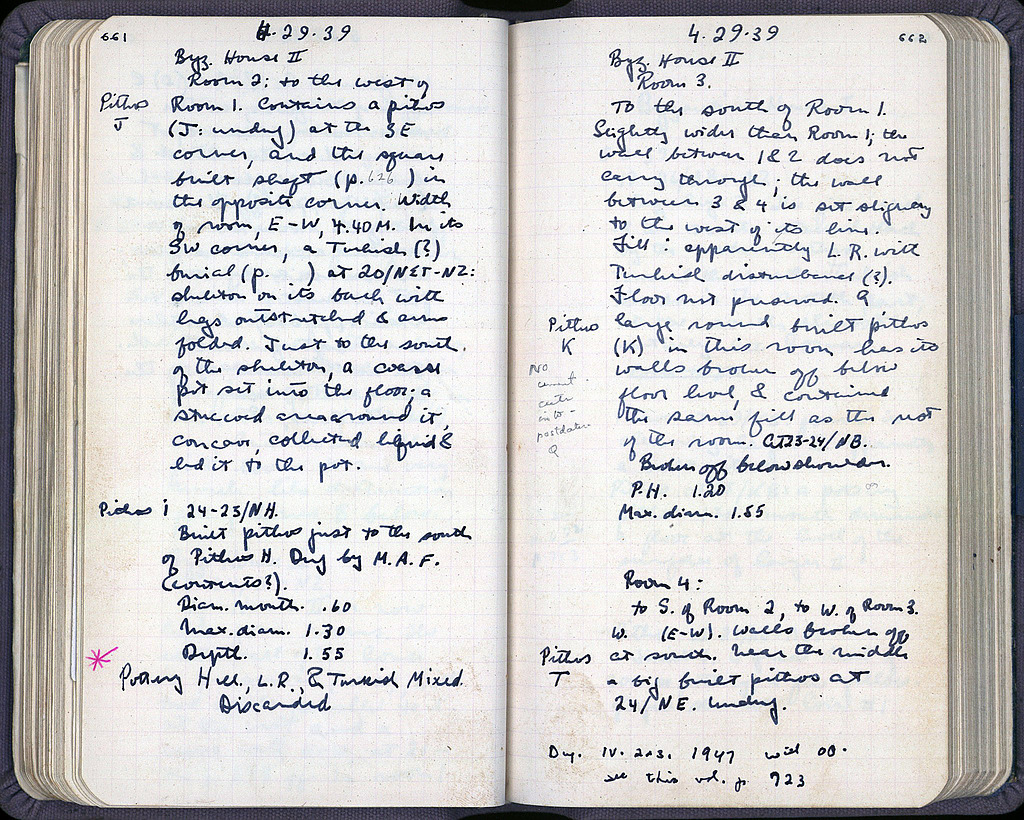 661
4.29.39
Byz. House II
Room 2: to the west of
Pithos J
Room 1. Contains a pithos
(J: undug) at the SE
corner, and the square
built shaft (p. 626 ) in
the opposite corner. Width
of room, E-W, 4.40 M. In its
SW corner, a Turkish (?)
burial (p. ) at 20/NET-NZ:
skeleton on its back with
legs outstretched & arms
folded. Just to the south
of the skeleton, a coarse
pot set into the floor; a
stuccoed area around it,
concave, collected liquid &
led it to the pot.
Pithos i 24-23/NH.
Built pithos just to the south
of Pithos H. Dug by M.A.F.
(contents?).
Diam. mouth. .60
Max. diam. 1.30
Depth. 1.55
Pottery Hell., L.R., & Turkish Mixed
Discarded
4.29.39
662
Byz. House II
Room 3.
To the south of Room 1.
Slightly wider than Room 1; the
wall between 1 & 2 does not
carry through; the wall
between 3 & 4 is set slightly
to the west of its line.
Fill: apparently L.R. with
Turkish disturbance (?).
Floor not preserved. A
Pithos K
large round built pithos
(K) in this room has its
walls broken off below
floor level, & contained
the same fill as the rest
of the room. At 23-24/NB.
No
cement
into -
postdates
Q
Broken off below shoulder.
P.H. 1.20
Max. diam. 1.55
Room 4:
to S. of Room 2, to W. of Room 3.
W. (E-W). Walls broken off
at south. Near the middle
Pithos T
a big built pithos at
24/NE. Undug.
Dug. IV. 2+3. 1947 with OO.
see this vol. p. 923